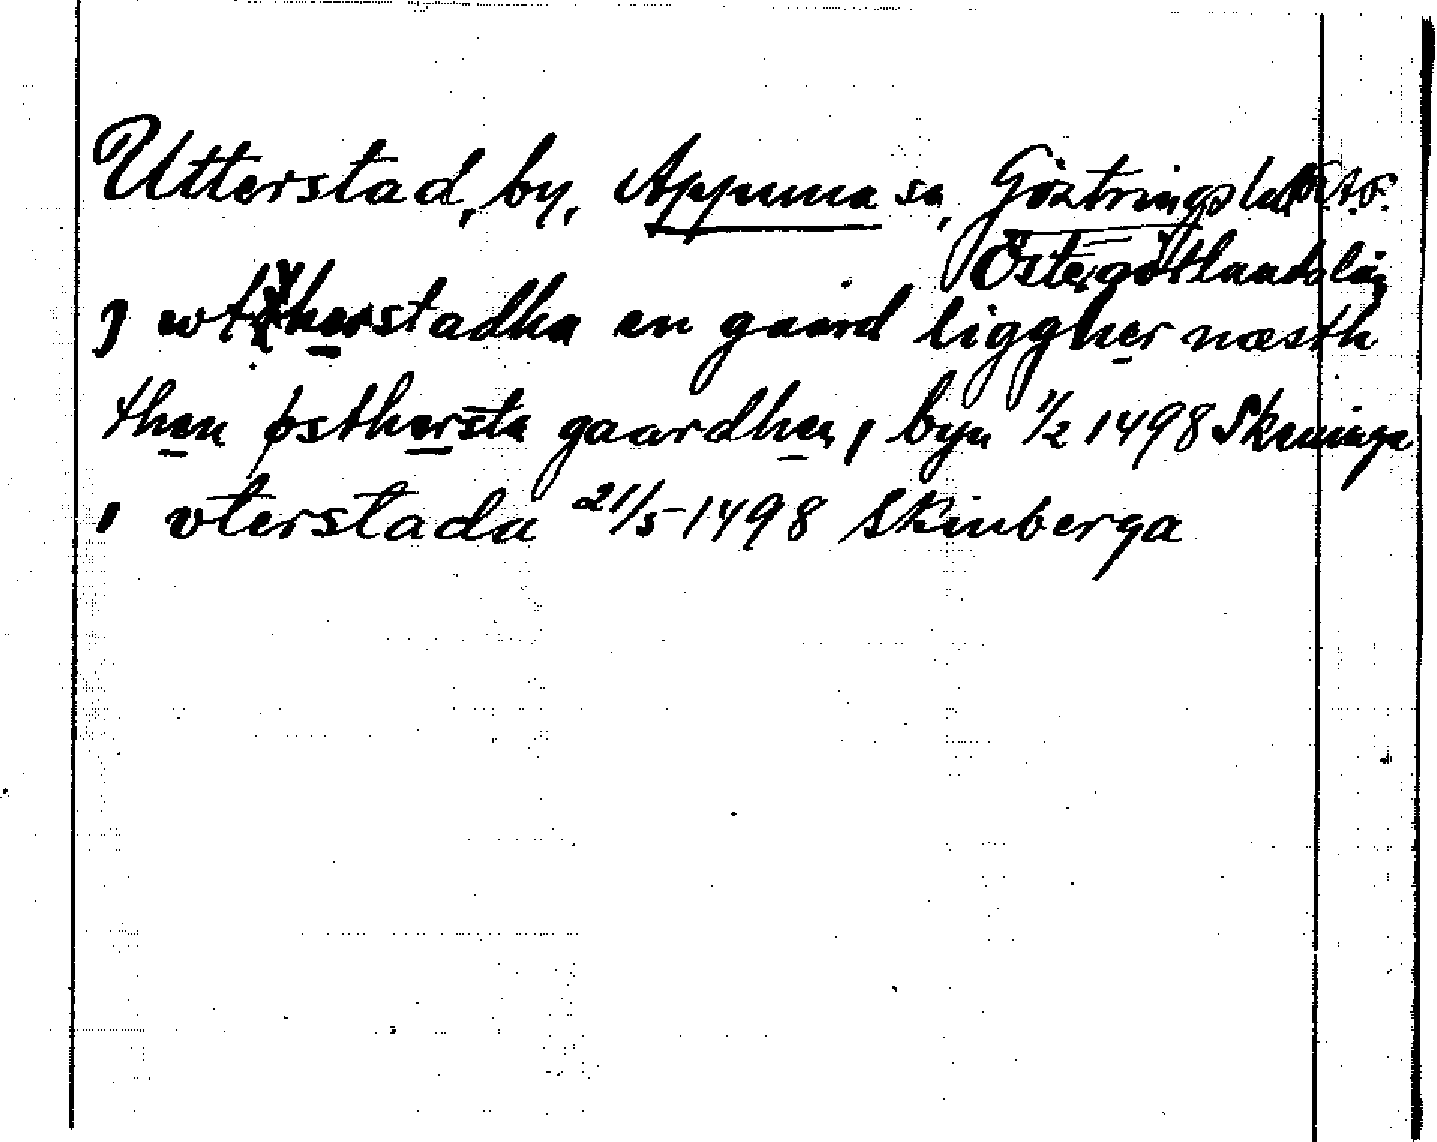 Utterstad, by, Appuna sn, Göstrings hd
Östergötlands län
J wtherstadha en gaard liggher næsth
then østhersta gaardhen, i byn 1/2 1498 Skeninge
i vterstada 21/5 1498 Skinberga